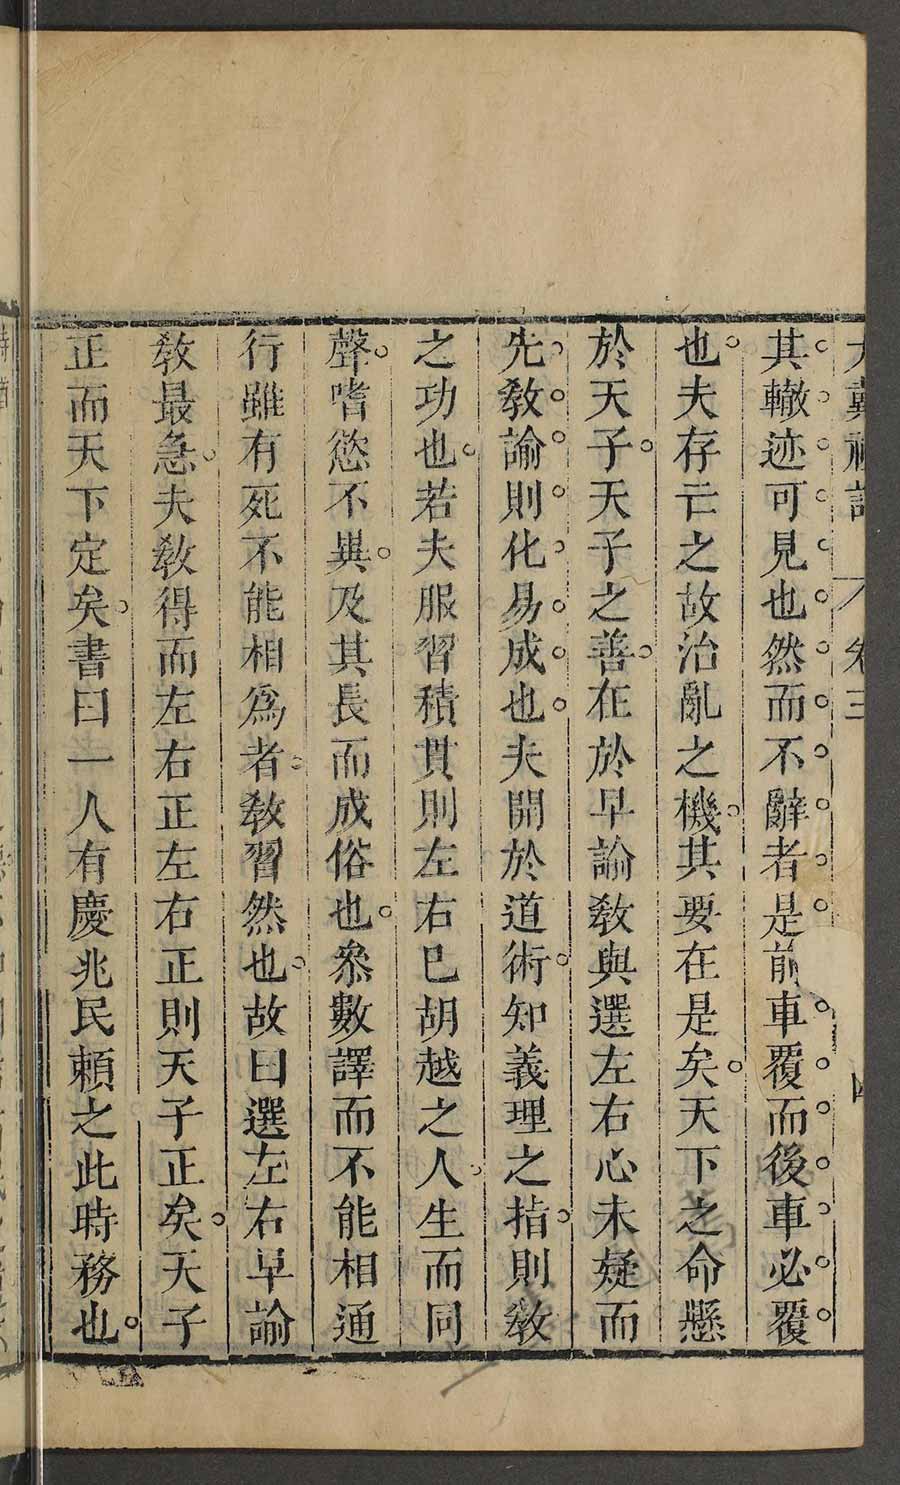 大戴禮記 卷三
其轍迹可見也然而不辭者是前車覆而後車必覆
也夫存亡之故治亂之機其要在是矣天下之命懸
於天子天子之善在於早諭敎與選左右心未疑而
先敎諭則化易成也夫開於道術知義理之指則敎
之功也若夫服習積貫則左右已胡越之人生而同
聲嗜慾不異及其長而成俗也叅數譯而不能相通
行雖有死不能相爲者敎習然也故曰選左右早諭
敎最急夫敎得而左右正左右正則天子正矣天子
正而天下定矣書曰一人有慶兆民賴之此時務也